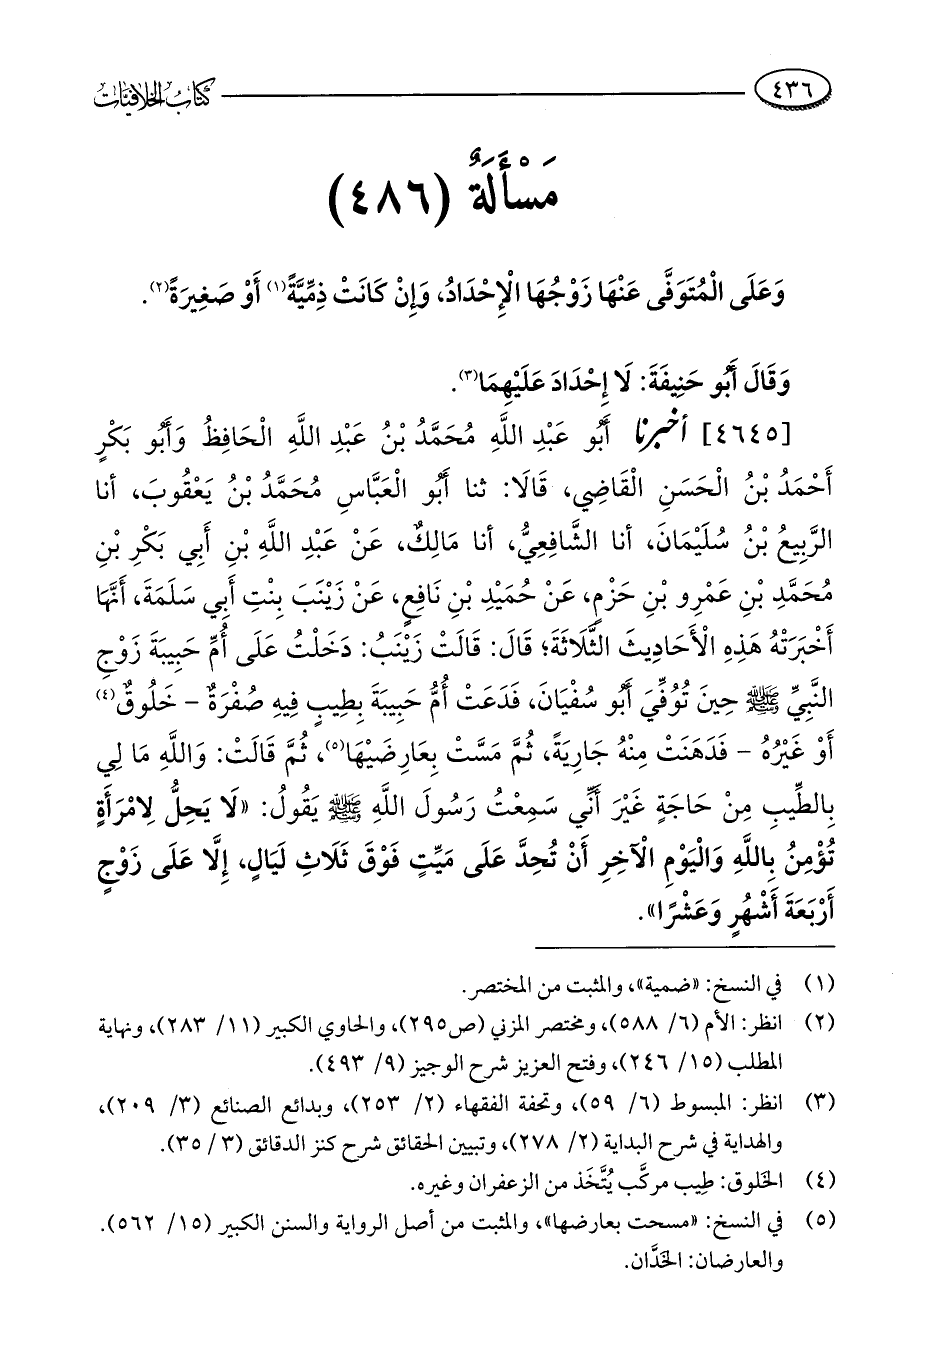 ٤٣٦ كتاب الخلافيات
مَسْأَلَةٌ (٤٨٦)
وَعَلَى الْمُتَوَفَّى عَنْهَا زَوْجُهَا الْإِحْدَادُ، وَإِنْ كَانَتْ ذِمِّيَّةً(١) أَوْ صَغِيرَةً(٢).
وَقَالَ أَبُو حَنِيفَةَ: لَا إِحْدَادَ عَلَيْهِمَا(٣).
[٤٦٤٥] أخبرنا أَبُو عَبْدِ اللَّهِ مُحَمَّدُ بْنُ عَبْدِ اللَّهِ الْحَافِظُ وَأَبُو بَكْرٍ
أَحْمَدُ بْنُ الْحَسَنِ الْقَاضِي، قَالَا: ثنا أَبُو الْعَبَّاسِ مُحَمَّدُ بْنُ يَعْقُوبَ، أنا
الرَّبِيعُ بْنُ سُلَيْمَانَ، أنا الشَّافِعِيُّ، أنا مَالِكٌ، عَنْ عَبْدِ اللَّهِ بْنِ أَبِي بَكْرِ بْنِ
مُحَمَّدِ بْنِ عَمْرِو بْنِ حَزْمٍ، عَنْ حُمَيْدِ بْنِ نَافِعٍ، عَنْ زَيْنَبَ بِنْتِ أَبِي سَلَمَةَ، أَنَّهَا
أَخْبَرَتْهُ هَذِهِ الْأَحَادِيثَ الثَّلَاثَةَ؛ قَالَ: قَالَتْ زَيْنَبُ: دَخَلْتُ عَلَى أُمِّ حَبِيبَةَ زَوْجِ
النَّبِيِّ ﷺ حِينَ تُوُفِّيَ أَبُو سُفْيَانَ، فَدَعَتْ أُمُّ حَبِيبَةَ بِطِيبٍ فِيهِ صُفْرَةٌ - خَلُوقٌ(٤)
أَوْ غَيْرُهُ - فَدَهَنَتْ مِنْهُ جَارِيَةً، ثُمَّ مَسَّتْ بِعَارِضَيْهَا(٥)، ثُمَّ قَالَتْ: وَاللَّهِ مَا لِي
بِالطِّيبِ مِنْ حَاجَةٍ غَيْرَ أَنِّي سَمِعْتُ رَسُولَ اللَّهِ ﷺ يَقُولُ: «لَا يَحِلُّ لِامْرَأَةٍ
تُؤْمِنُ بِاللَّهِ وَالْيَوْمِ الْآخِرِ أَنْ تُحِدَّ عَلَى مَيِّتٍ فَوْقَ ثَلَاثِ لَيَالٍ، إِلَّا عَلَى زَوْجٍ
أَرْبَعَةَ أَشْهُرٍ وَعَشْرًا».
(١) في النسخ: «ضمية»، والمثبت من المختصر.
(٢) انظر: الأم (٦/ ٥٨٨)، ومختصر المزني (ص٢٩٥)، والحاوي الكبير (١١/ ٢٨٣)، ونهاية
المطلب (١٥/ ٢٤٦)، وفتح العزيز شرح الوجيز (٩/ ٤٩٣).
(٣) انظر: المبسوط (٦/ ٥٩)، وتحفة الفقهاء (٢/ ٢٥٣)، وبدائع الصنائع (٣/ ٢٠٩)،
والهداية في شرح البداية (٢/ ٢٧٨)، وتبيين الحقائق شرح كنز الدقائق (٣/ ٣٥).
(٤) الخلوق: طِيب مركَّب يُتَّخَذ من الزعفران وغيره.
(٥) في النسخ: «مسحت بعارضها»، والمثبت من أصل الرواية والسنن الكبير (١٥/ ٥٦٢).
والعارضان: الخدَّان.